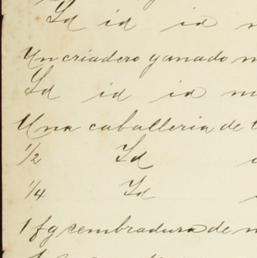 Id id id
Un criadero ganado
Id id id
Una caballeria de
1/2 Id
1/4 Id
1 fg cembradura de